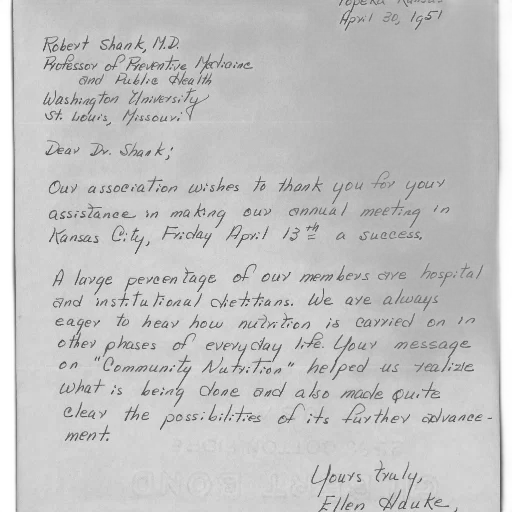 Topeka Kansas
April 30, 1951
Robert Shank, M.D.
Professor of Preventive Medicine
and Public Health
Washington University
St. Louis, Missouri
Dear Dr. Shank;
Our association wishes to thank you for your
assistance in making our annual meeting in
Kansas City, Friday April 13th a success.
A large percentage of our members are hospital
and institutional dietitians. We are always
eager to hear how nutrition is carried on in
other phases of everyday life. Your message
on "Community Nutrition" helped us realize
what is being done and also made quite
clear the possibilities of its further advance-
ment.
Yours truly,
Ellen Hauke,